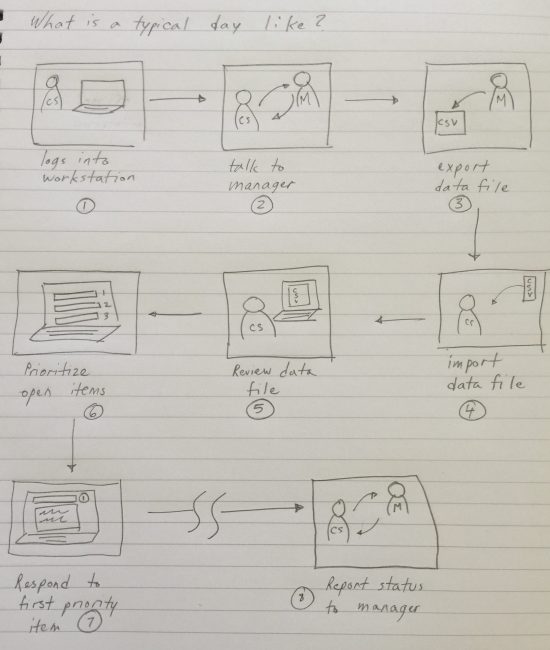 What is a typical day like?
CS
logs into
workstation
1
CS M
talk to
manager
2
M
CSV
export
data file
3
CS
CSV
import
data file
4
CS
CSV
Review data
file
5
1
2
3
Prioritize
open items
6
1
Respond to
first priority
item 7
CS M
8 Report status
to manager